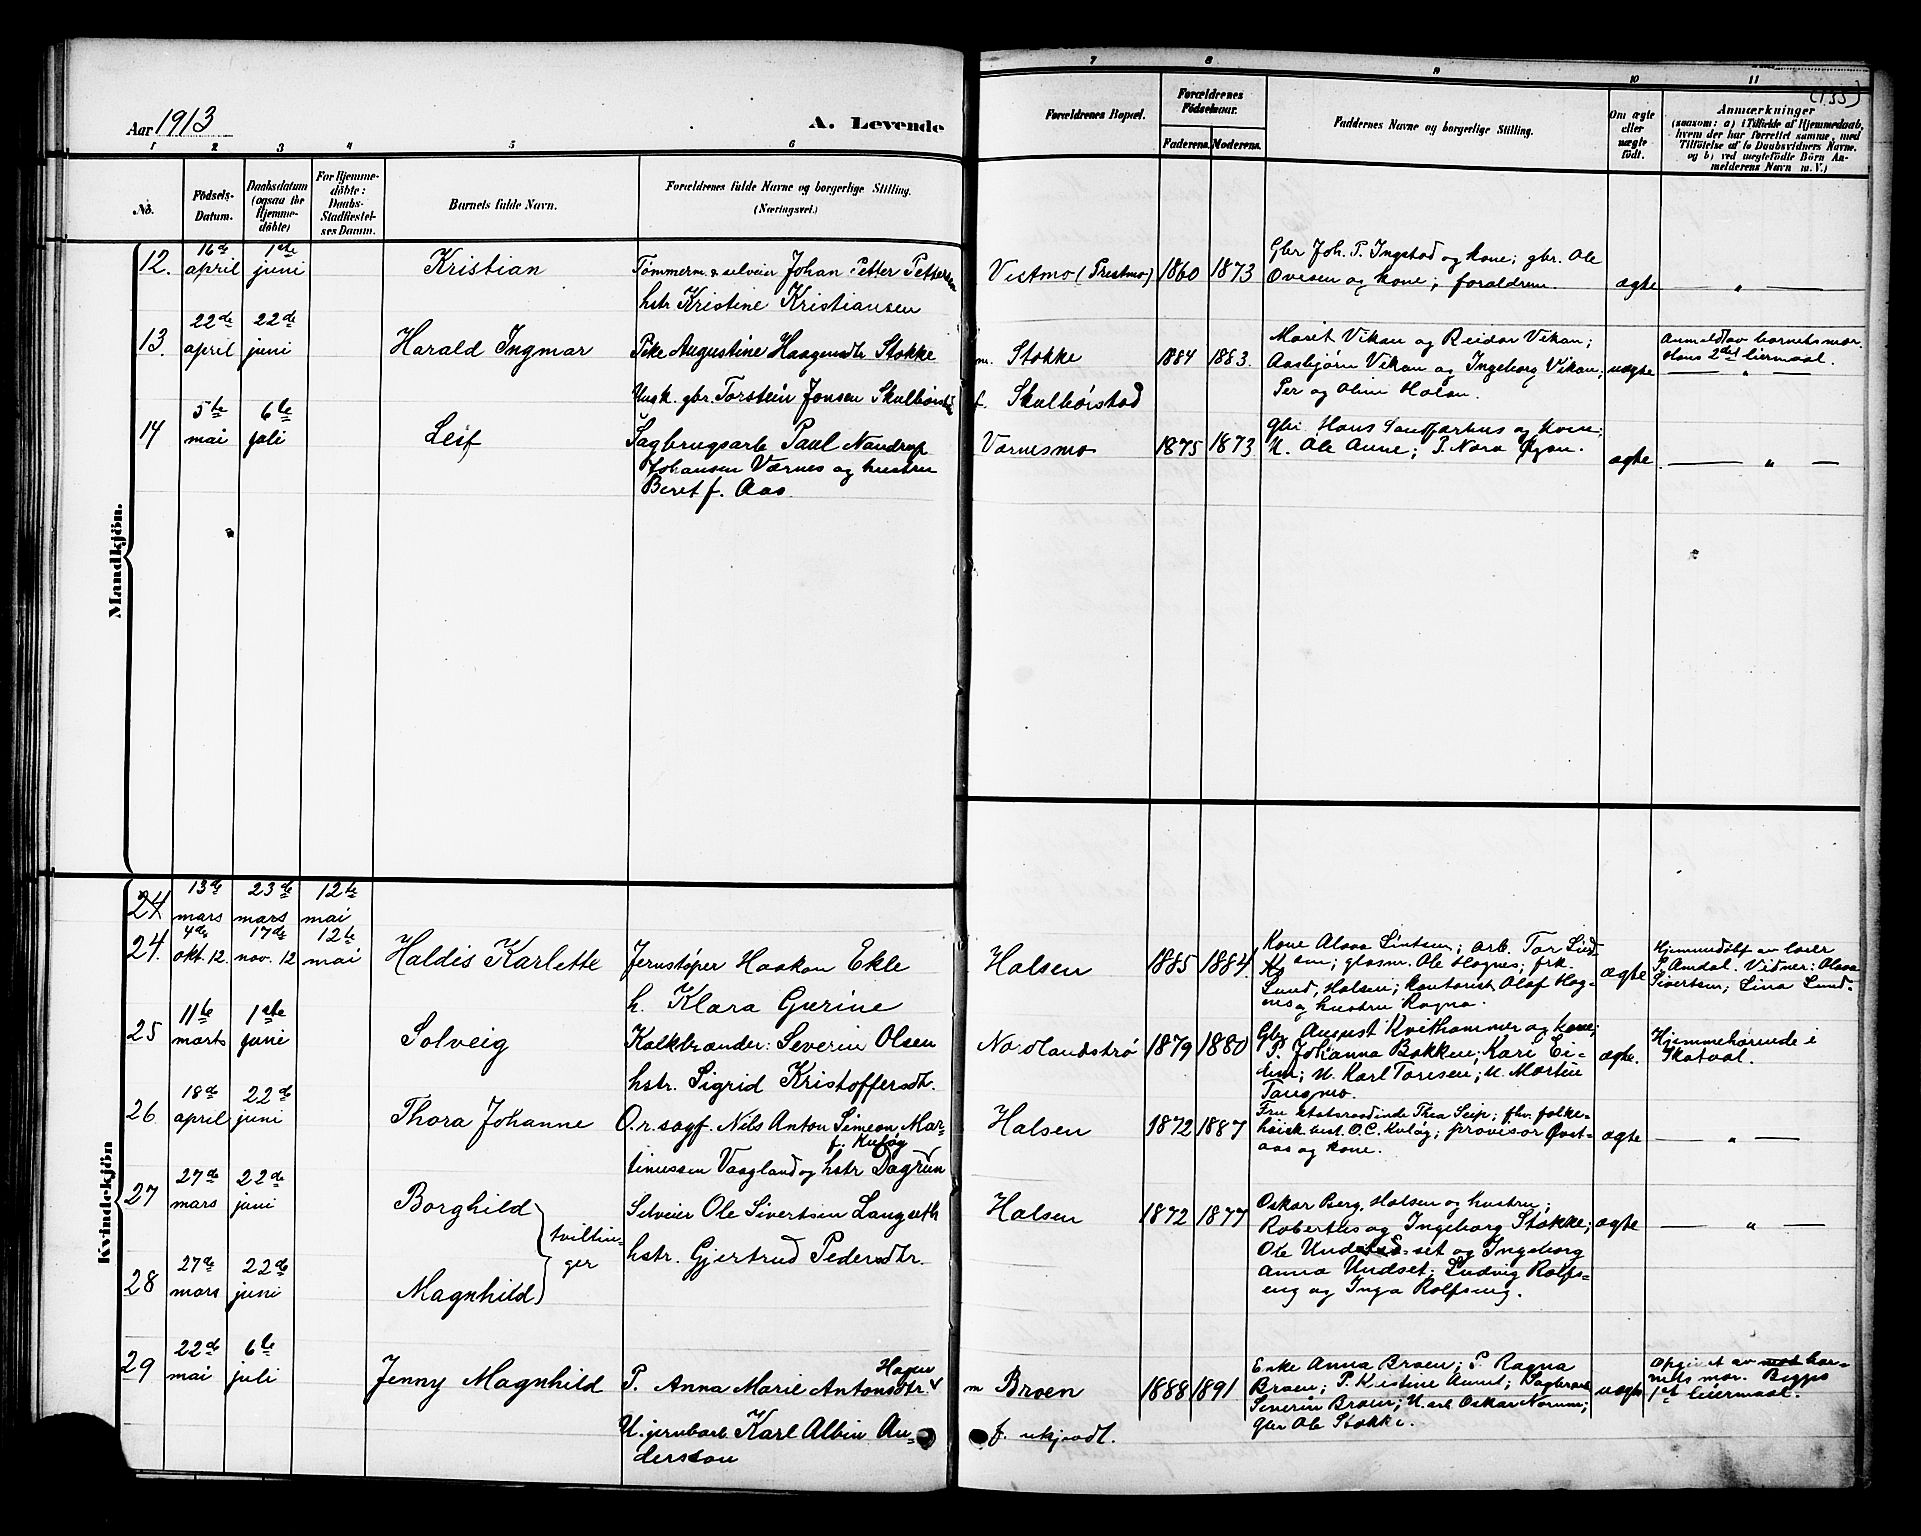 Aar 1913
A. Levende
(155)
1 2 3 4 5 6 7 8 9 10 11
No.
Födsels-
Datum.
Daabsdatum
(ogsaa for
Hjemme-
döbte)
For Hjemme-
döbte:
Daabs-
Stadfæstel-
ses Datum.
Barnets fulde Navn.
Forældrenes fulde Navne og borgerlige Stilling.
(Næringsvei.)
Forældrenes Bopæl.
Forældrenes
Födselsaar.
Faderens. Moderens.
Faddernes Navne og borgerlige Stilling.
Om ægte
eller
uægte
födt.
Anmærkninger
(saasom: a) i Tilfælde af Hjemmedaab,
hvem der har forrettet samme, med
Tilföielse af to Daabsvidners Navne.
og b) ved uægtefödte Börn An-
melderens Navn m. V.)
Mandkjön.
12. 16de april 1ste juni Kristian
Tømmerm. & selveier Johan Petter Pettersen
hstr Kristine Kristiansen
Vestmo (Prestmo) 1860 1873
Gbr Joh. P. Ingstad og kone; gbr. Ole
Ovesen og kone; forældrene.
ægte — " —
13. 22de april 22de juni Harald Ingmar
Pike Augustine Haagensdtr Stokke
Ungk. gbr. Torstein Jonsen Skulbørstad
m. Stokke 1884 1883.
f. Skulbørstad
Marit Vikan og Reidar Vikan;
Aasbjørn Vikan og Ingeborg Vikan;
Per og Oline Holan.
uægte
Anmeldt av barnets mor.
Hans 2det leiermaal.
— " —
14 5te mai 6te juli Leif
Sagbrugsarb. Paul Nandrup
Johansen Værnes og hustru
Beret f. Aas.
Værnesmo 1875 1873
gbr. Hans Sandfærhus og kone;
U. Ole Aune; P. Nora Øyan.
ægte — " —
Kvindekjön
24 13de mars 23de mars 12te mai
24. 4de okt. 12. 17de nov. 12 12te mai Haldis Karlotte
Jernstøper Haakon Ekle
h. Klara Gurine
Halsen 1885 1884
Kone Alova Sivertsen; arb. Tor Lind
em; glasm. Ole Hognes; frk.
Lund, Halsen; kontorist Olaf Hog-
nes og hustru Ragna.
ægte
Hjemmedøpt av lærer
P. Amdal. Vidner: Olava
Sivertsen; Lina Lund-
25 11te marts 1ste juni Solveig
Kalkbrænder: Severin Olsen
hstr. Sigrid Kristoffersdtr.
Nordlandstrø 1879 1880
Gbr August Kvithammer og kone;
P. Johanna Bakken; Kari Ei-
den; U. Karl Toresen; U. Martin
Tangmo.
ægte.
Hjemmehørende i
Skatval.
26 18de april 22de juni Thora Johanne
O.r.sagf. Nils Anton Simeon Mar-
tinussen Vaagland og hstr Dagrun
f. Kuløy
Halsen 1872 1887
Fru statsraadinde Thea Seip; fhv. folke-
høisk. best. O.C. Kuløy; provisor Øvst-
aas og kone.
ægte — " —
27 27de mars 22de juni Borghild
tvillin-
ger
28 27de mars 22de juni Magnhild
Selveier Ole Sivertsen Langseth
hstr. Gjertrud Pedersdtr.
Halsen 1872 1877
Oskar Berg, Halsen og hustru;
Robertus og Ingeborg Stokke;
Ole Undset og Ingeborg
Anna Undset; Ludvig Rolfs-
eng og Inga Rolfseng.
ægte — " —
29 22de mai 6te juli Jenny Magnhild
P. Anna Marie Antonsdtr
Hagen
U. jernbarb Karl Albin An-
dersson
m Broen 1888 1891
f. ukjendt.
Enke Anna Broen; P. Ragna
Broen; P. Kristine Aune; Dagbrand
Severin Broen; U. arb Oskar Norum;
gbr Ole Stokke.
uægte
Opgivet av mod bar-
nets mor. Begges
1ste leiermaal.